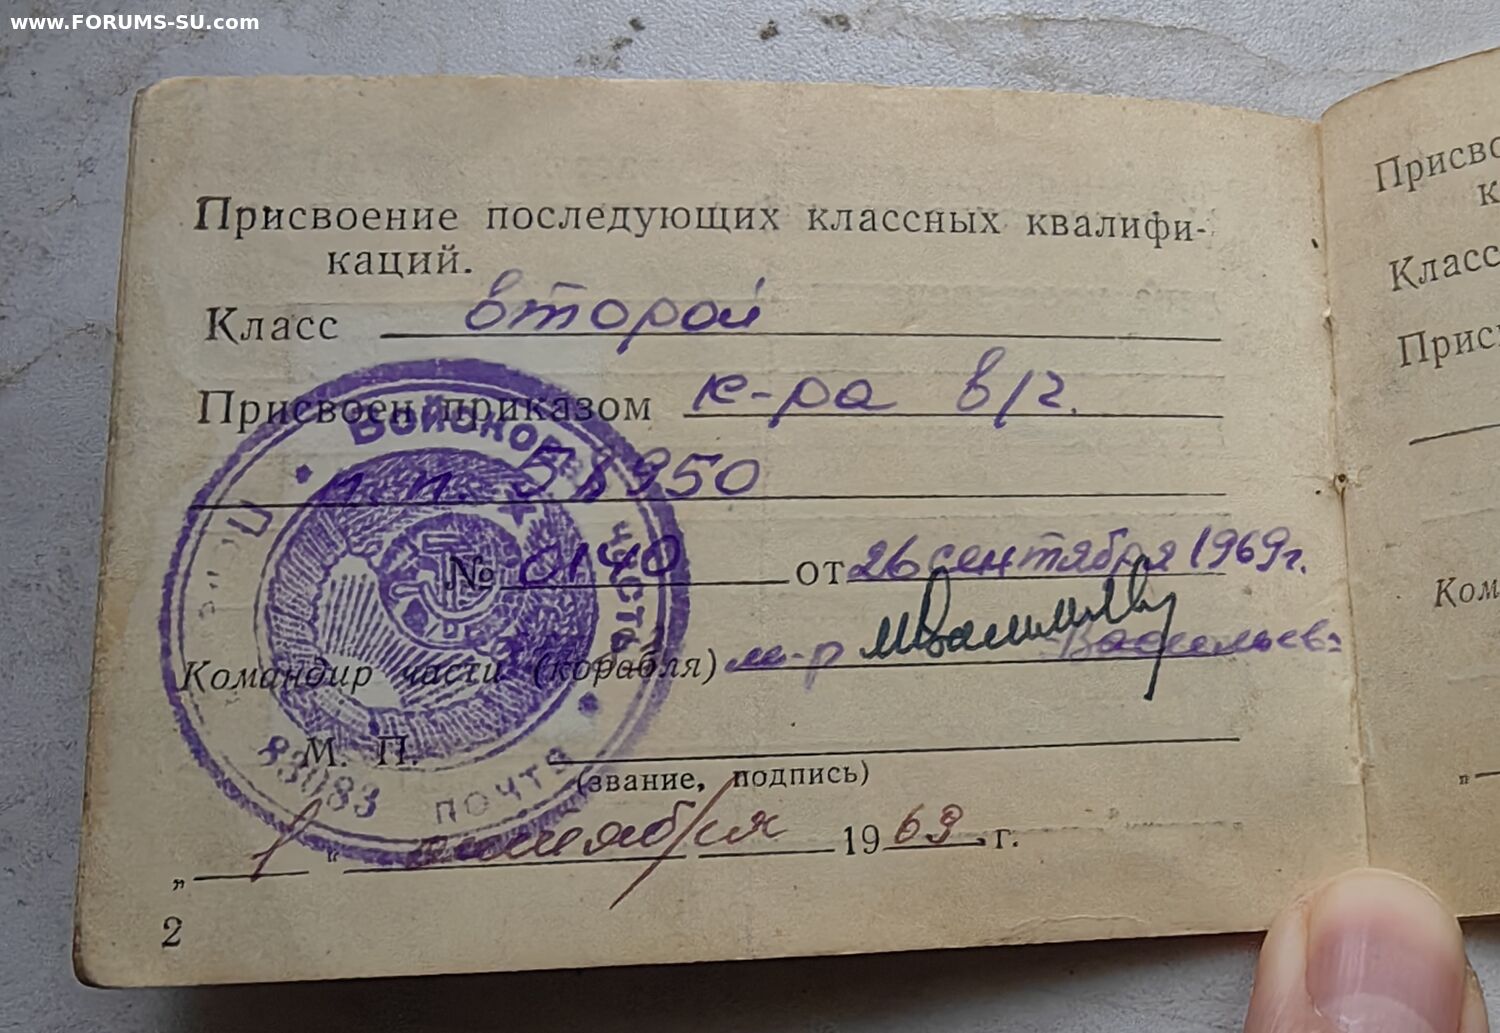 www.FORUMS-SU.com
Присвоение последующих классных квалифи-
каций.
Класс второй
Присвоен приказом к-ра в/ч.
п.п.
№ 0140 от 26 сентября 1969г.
Командир части (корабля) м-р Васильев
М. П.
(звание, подпись)
„ 1 “ октября 1969 г.
2
Войсковая часть
83083
почта
Присво
к
Класс
Прис
Ком
„